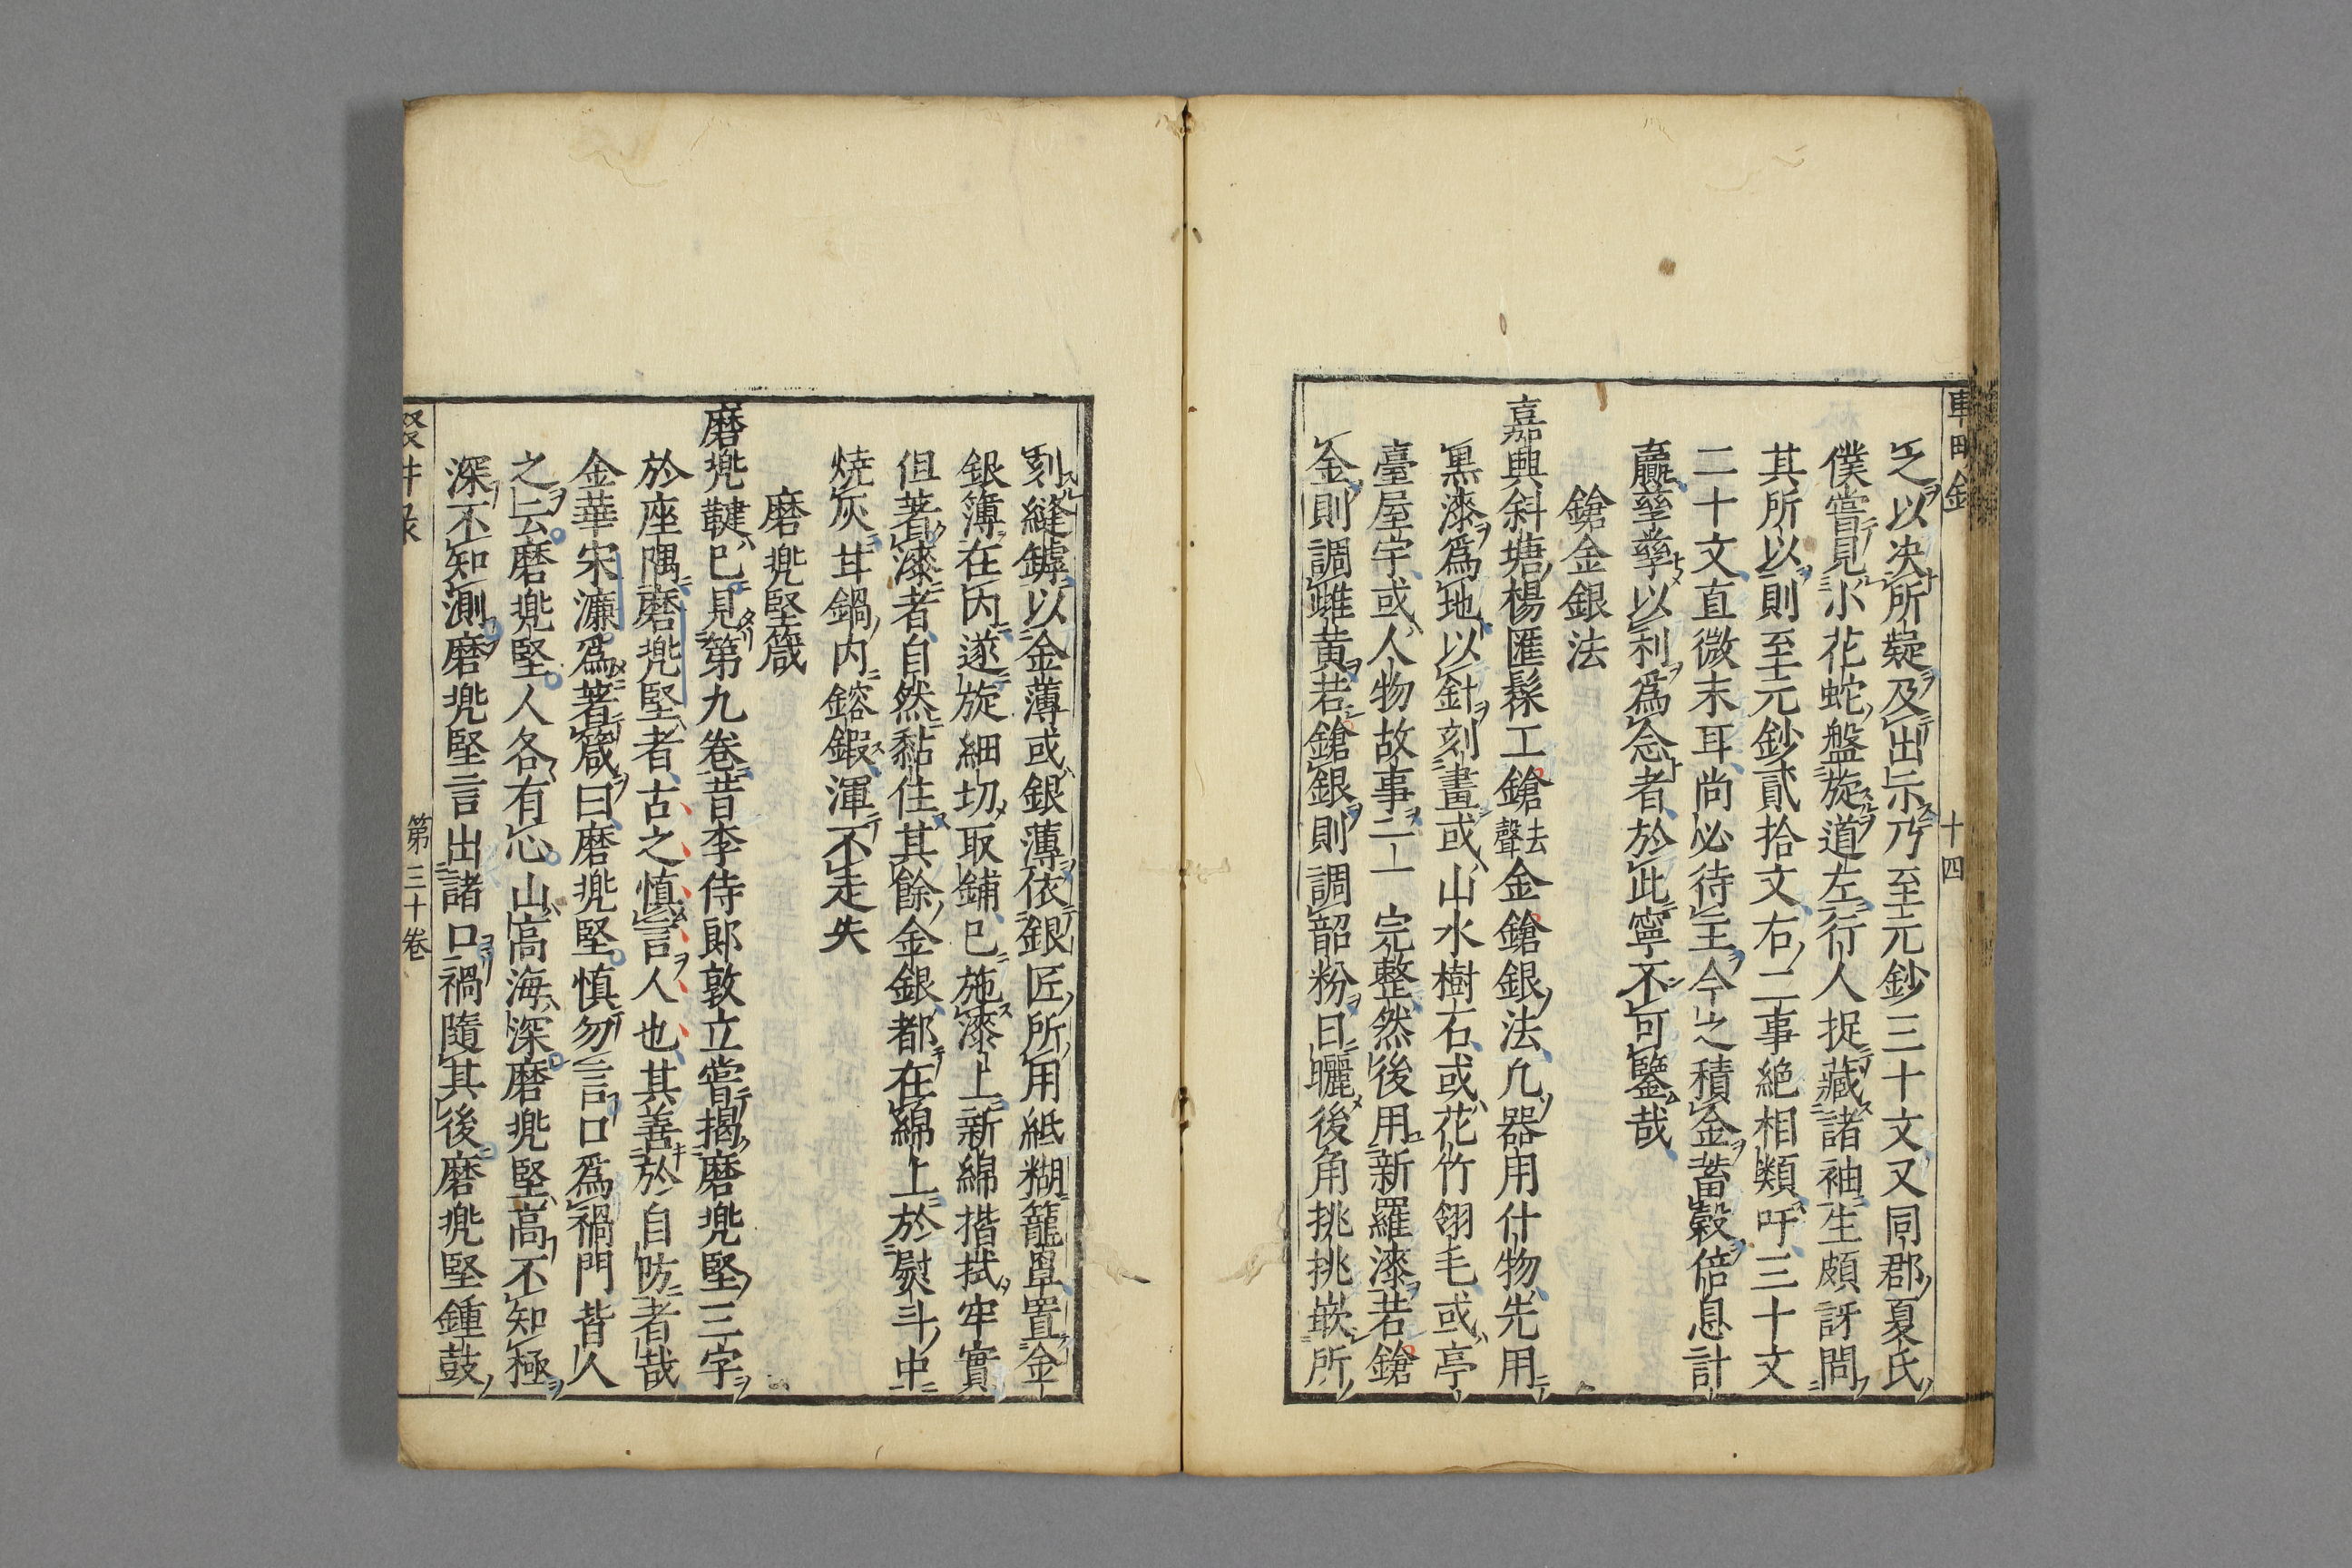 之以决所疑及出示乃至元鈔三十文又同郡夏氏
僕嘗見小花蛇盤旋道左行人捉藏諸袖生頗訝問
其所以則至元鈔貳拾文右二事絶相類吁三十文
二十文直微末耳尚必待主今之積金蓄穀倍息計
贏孳孳以利爲念者於此寧不可鑒哉
鎗金銀法
嘉興斜塘楊匯髹工鎗去聲金鎗銀法凢器用什物先用
黒漆爲地以針刻畫或山水樹石或花竹翎毛或亭
臺屋宇或人物故事一一完整然後用新羅漆若鎗
金則調雌黄若鎗銀則調韶粉日曬後角挑挑嵌所
刻縫鏬以金薄或銀薄依銀匠所用紙糊籠罩置金
銀簿在内遂旋細切取鋪已施漆上新綿揩拭牢實
但著漆者自然黏住其餘金銀都在綿上於熨斗中
燒灰甘鍋内鎔鍜渾不走失
磨兠堅箴
磨兠鞬已見第九卷昔李侍郎敦立嘗揭磨兠堅三字
於座隅磨兠堅者古之慎言人也其善於自防者哉
金華宋濂爲著箴曰磨兠堅慎勿言口爲禍門昔人
之云磨兠堅人各有心山高海深磨兠堅高不知極
深不知測磨兠堅言出諸口禍隨其後磨兠堅鍾鼓
十四
第三十卷